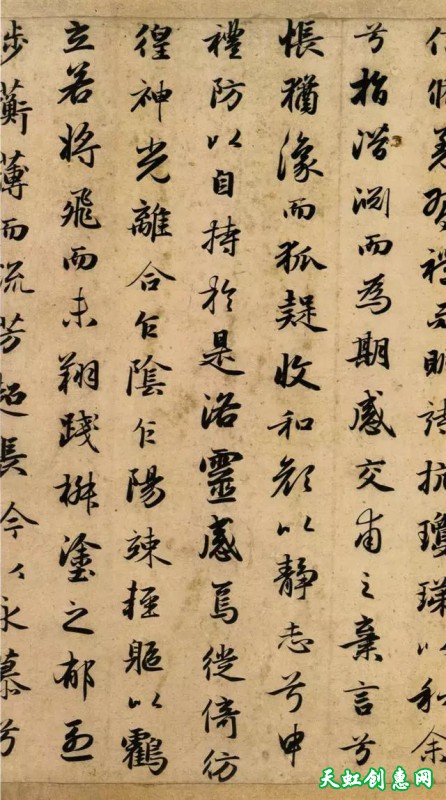 信脩羌習禮而明詩抗瓊珶以和余
兮指潛淵而為期感交甫之棄言兮
悵猶豫而狐疑收和顏以靜志兮申
禮防以自持於是洛靈感焉徙倚彷
徨神光離合乍陰乍陽竦輕軀以鶴
立若將飛而未翔踐椒塗之郁烈
步蘅薄而流芳超長吟以永慕兮
天虹创惠网